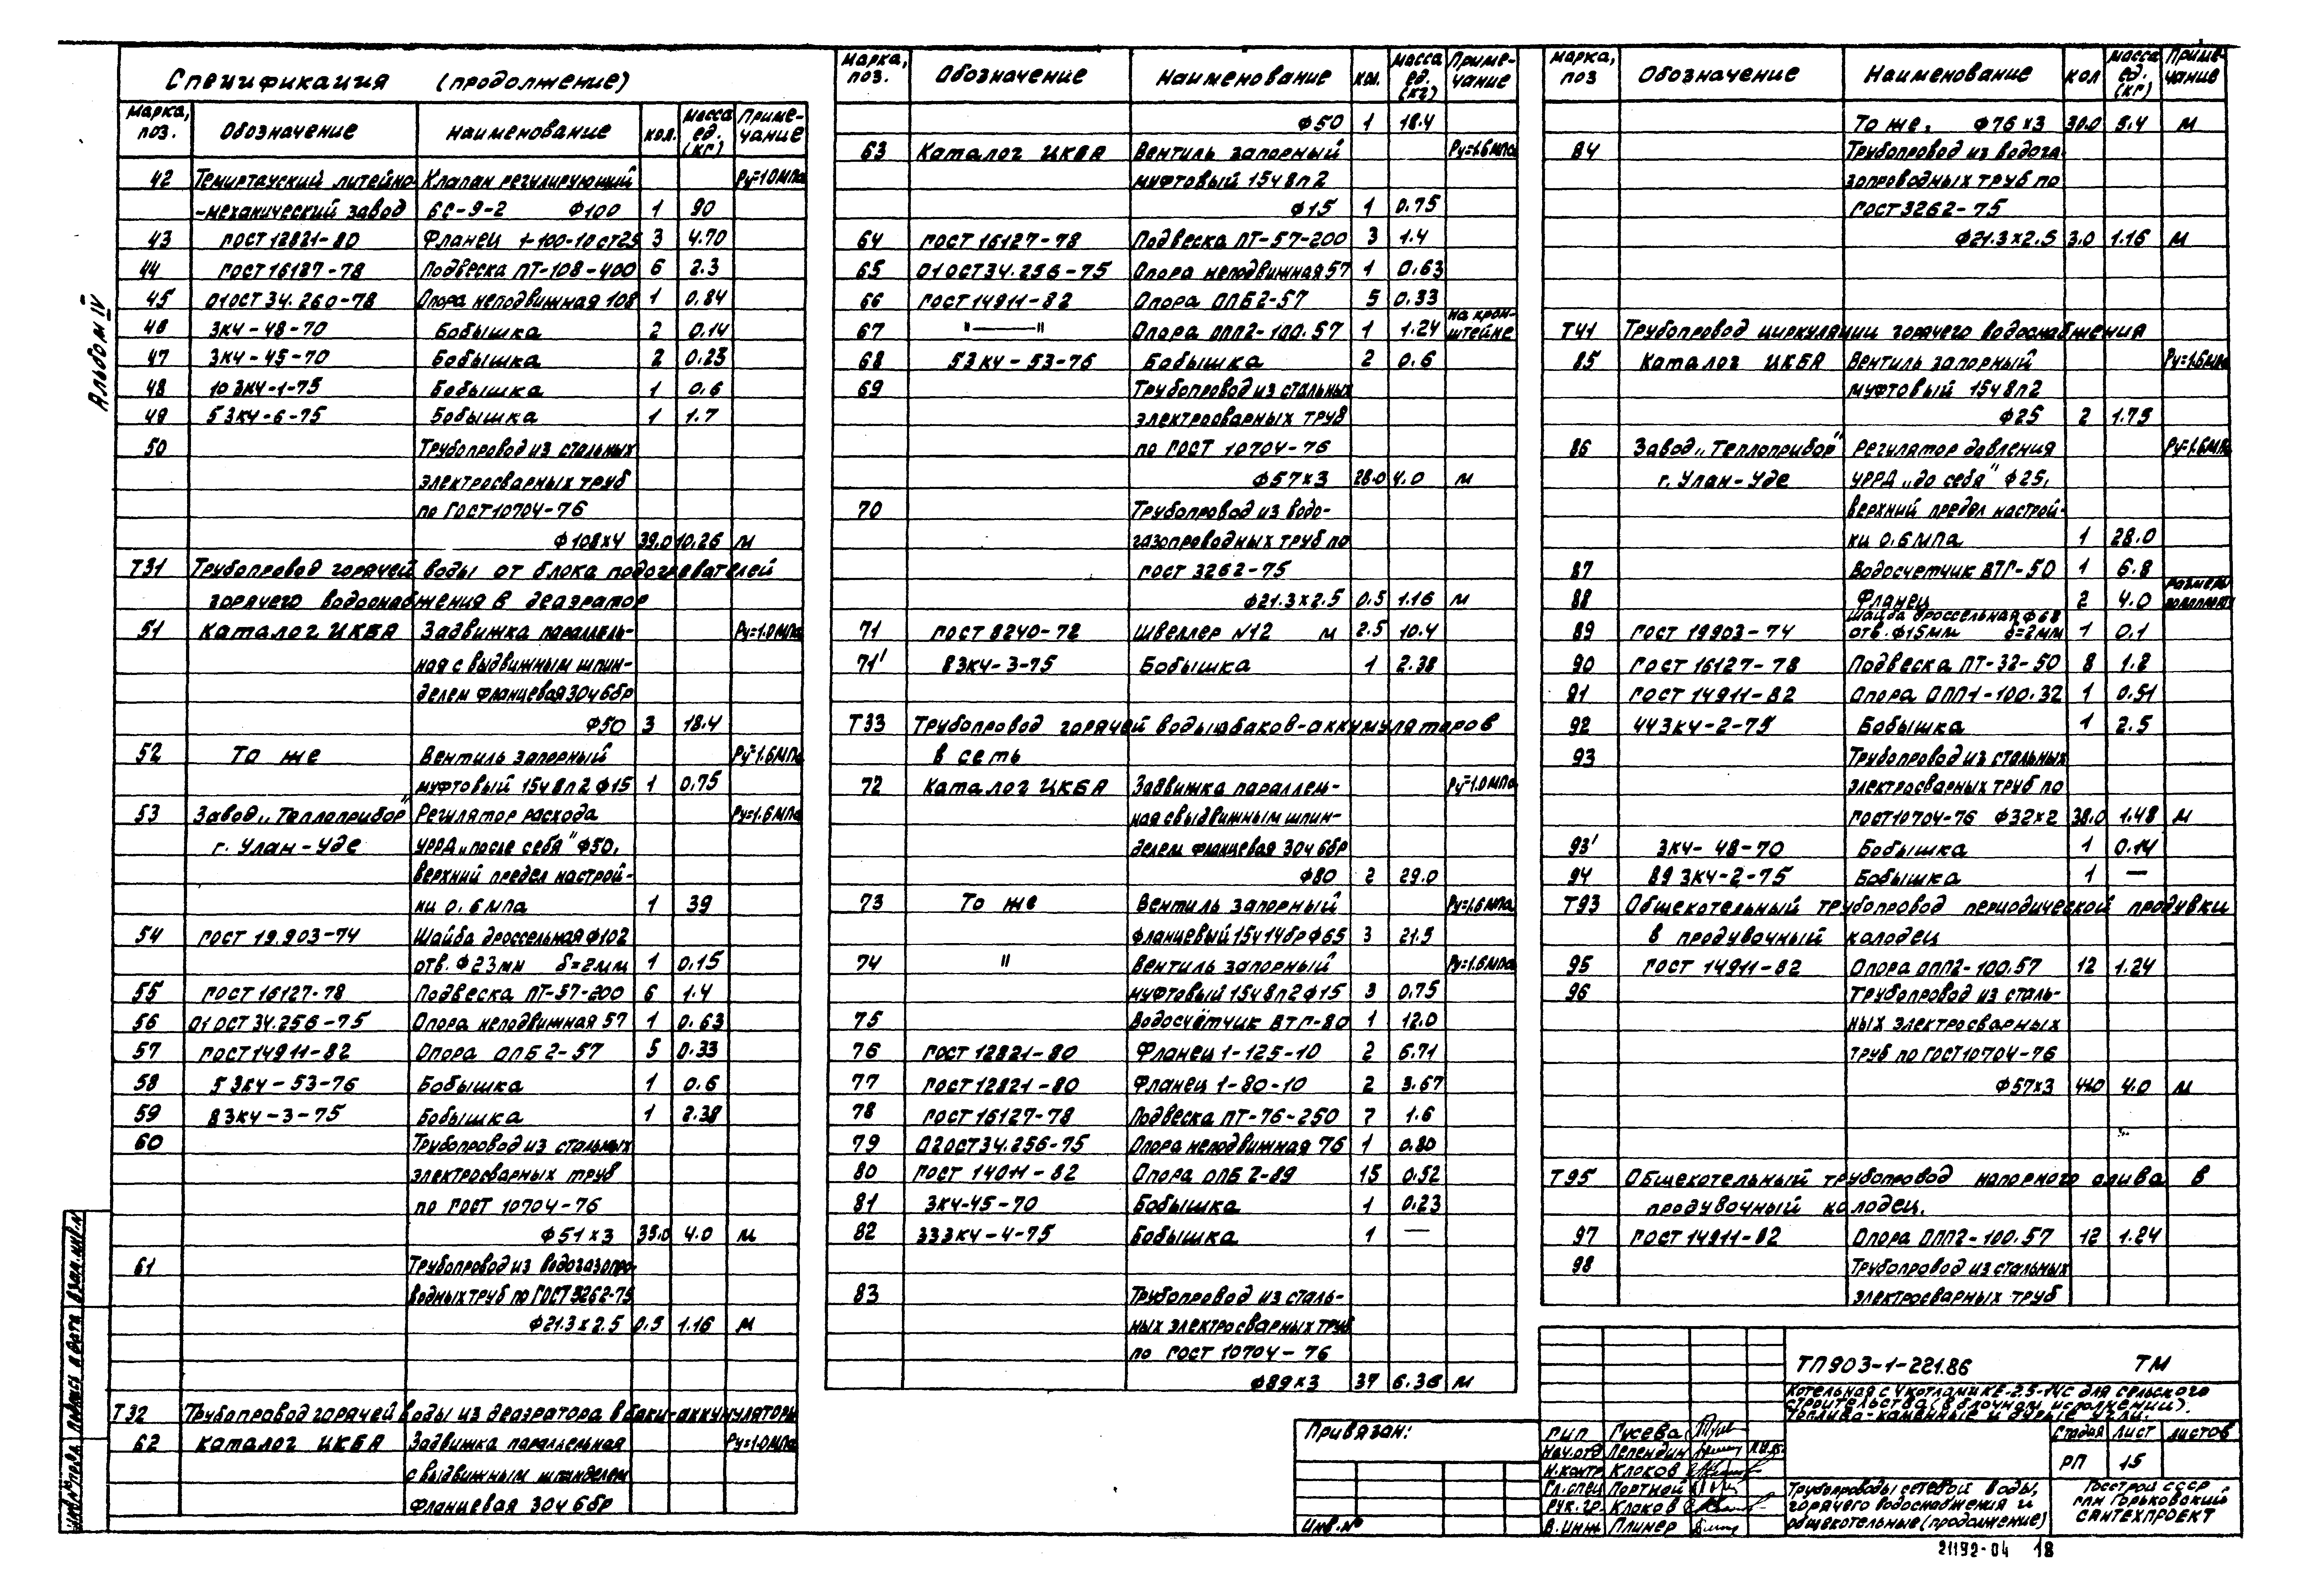 Альбом IV
Спецификация (продолжение)
Марка, поз. Обозначение Наименование кол. Масса ед. (кг) Примечание
42 Темиртауский литейно- Клапан регулирующий Ру=1.0МПа
-механический завод 6с-9-2 Ф100 1 90
43 ГОСТ 12821-80 Фланец 1-100-10 ст25 3 4.70
44 ГОСТ 16127-78 Подвеска ПТ-108-400 6 2.3
45 01ОСТ 34.260-78 Опора неподвижная 108 1 0.84
46 3К4-48-70 Бобышка 2 0.14
47 3К4-45-70 Бобышка 2 0.23
48 103К4-1-75 Бобышка 1 0.6
49 53К4-6-75 Бобышка 1 1.7
50 Трубопровод из стальных
электросварных труб
по ГОСТ 10704-76
Ф108х4 39.0 10.26 м
Т31 Трубопровод горячей воды от блока подогревателей
горячего водоснабжения в деаэратор
51 Каталог ЦКБА Задвижка параллель- Ру=1.0МПа
ная с выдвижным шпин-
делем фланцевая 30ч6бр
Ф50 3 18.4
52 То же Вентиль запорный Ру=1.6МПа
муфтовый 15ч8п2 Ф15 1 0.75
53 Завод „Теплоприбор" Регулятор расхода Ру=1.6МПа
г. Улан-Удэ УРРД „после себя" Ф50,
верхний предел настрой-
ки 0.6 мпа 1 39
54 ГОСТ 19.903-74 Шайба дроссельная Ф102
отв. Ф23мм δ=2мм 1 0.15
55 ГОСТ 16127-78 Подвеска ПТ-57-200 6 1.4
56 01ОСТ 34.256-75 Опора неподвижная 57 1 0.63
57 ГОСТ 14911-82 Опора ОПБ2-57 5 0.33
58 53К4-53-76 Бобышка 1 0.6
59 83К4-3-75 Бобышка 1 2.38
60 Трубопровод из стальных
электросварных труб
по ГОСТ 10704-76
Ф51х3 39.0 4.0 м
61 Трубопровод из водогазопро-
водных труб по ГОСТ 3262-75
Ф21.3х2.5 0.5 1.16 м
Т32 Трубопровод горячей воды из деаэратора в баки-аккумуляторы
62 Каталог ЦКБА Задвижка параллельная Ру=1.0МПа
с выдвижным шпинделем
фланцевая 30ч6бр
Марка, поз. Обозначение Наименование кол. Масса ед. (кг) Примечание
Ф50 1 18.4
63 Каталог ЦКБА Вентиль запорный Ру=1.6МПа
муфтовый 15ч8п2
Ф15 1 0.75
64 ГОСТ 16127-78 Подвеска ПТ-57-200 3 1.4
65 01ОСТ 34.256-75 Опора неподвижная 57 1 0.63
66 ГОСТ 14911-82 Опора ОПБ2-57 5 0.33
67 "——" Опора ОПП2-100.57 1 1.24 на крон-штейне
68 53К4-53-76 Бобышка 2 0.6
69 Трубопровод из стальных
электросварных труб
по ГОСТ 10704-76
Ф57х3 28.0 4.0 м
70 Трубопровод из водо-
газопроводных труб по
ГОСТ 3262-75
Ф21.3х2.5 0.5 1.16 м
71 ГОСТ 8240-72 Швеллер N12 м 2.5 10.4
71' 83К4-3-75 Бобышка 1 2.38
Т33 Трубопровод горячей воды из баков-аккумуляторов
в сеть
72 Каталог ЦКБА Задвижка параллель- Ру=1.0МПа
ная с выдвижным шпин-
делем фланцевая 30ч6бр
Ф80 2 29.0
73 То же Вентиль запорный Ру=1.6МПа
фланцевый 15ч14бр Ф65 3 21.5
74 " Вентиль запорный Ру=1.6МПа
муфтовый 15ч8п2 Ф15 3 0.75
75 Водосчётчик ВТГ-80 1 12.0
76 ГОСТ 12821-80 Фланец 1-125-10 2 6.71
77 ГОСТ 12821-80 Фланец 1-80-10 2 3.67
78 ГОСТ 16127-78 Подвеска ПТ-76-250 7 1.6
79 02ОСТ34.256-75 Опора неподвижная 76 1 0.80
80 ГОСТ 14011-82 Опора ОПБ 2-89 15 0.52
81 3К4-45-70 Бобышка 1 0.23
82 333К4-4-75 Бобышка 1 —
83 Трубопровод из сталь-
ных электросварных труб
по ГОСТ 10704-76
Ф89х3 37 6.36 м
Марка, поз Обозначение Наименование кол Масса ед. (кг) Примечание
То же, Ф76х3 30.0 5.4 м
84 Трубопровод из водога-
зопроводных труб по
ГОСТ 3262-75
Ф21.3х2.5 3.0 1.16 м
Т41 Трубопровод циркуляции горячего водоснабжения
85 Каталог ЦКБА Вентиль запорный Ру=1.6МПа
муфтовый 15ч8п2
Ф25 2 1.75
86 Завод „Теплоприбор" Регулятор давления Ру=1.6МПа
г. Улан-Удэ УРРД „до себя" Ф25,
верхний предел настрой-
ки 0.6 МПа 1 28.0
87 Водосчетчик ВТГ-50 1 6.8
88 Фланец 2 4.0 размеры
89 ГОСТ 19903-74 Шайба дроссельная Ф68 отв. Ф15мм δ=2мм 1 0.1
90 ГОСТ 16127-78 Подвеска ПТ-32-50 8 1.2
91 ГОСТ 14911-82 Опора ОПП1-100.32 1 0.51
92 443К4-2-75 Бобышка 1 2.5
93 Трубопровод из стальных
электросварных труб по
ГОСТ 10704-76 Ф32х2 38.0 1.48 м
93' 3К4-48-70 Бобышка 1 0.14
94 893К4-2-75 Бобышка 1 —
Т93 Общекотельный трубопровод периодической продувки
в продувочный колодец
95 ГОСТ 14911-82 Опора ОПП2-100.57 12 1.24
96 Трубопровод из сталь-
ных электросварных
труб по ГОСТ 10704-76
Ф57х3 4.0 м
Т95 Общекотельный трубопровод напорного слива в
продувочный колодец.
97 ГОСТ 14911-82 Опора ОПП2-100.57 12 1.24
98 Трубопровод из стальных
электросварных труб
ТП903-1-221.86 ТМ
Котельная с 4 котлами КЕ-2.5-14С для сельского
строительства (в блочном исполнении).
Топливо-каменные и бурые угли.
Привязан:
Инв.№
ГИП Гусева
Нач.отд Лепендин
Н.контр Клоков
Гл.спец Портной
Рук.гр. Клоков
В.инж Плинер
Стадия Лист Листов
РП 15
Трубопроводы сетевой воды,
горячего водоснабжения и
общекотельные (продолжение)
Госстрой СССР
ГПИ Горьковский
САНТЕХПРОЕКТ
Инв.№ подл. Подпись и дата Взам.инв.№
21192-04 18